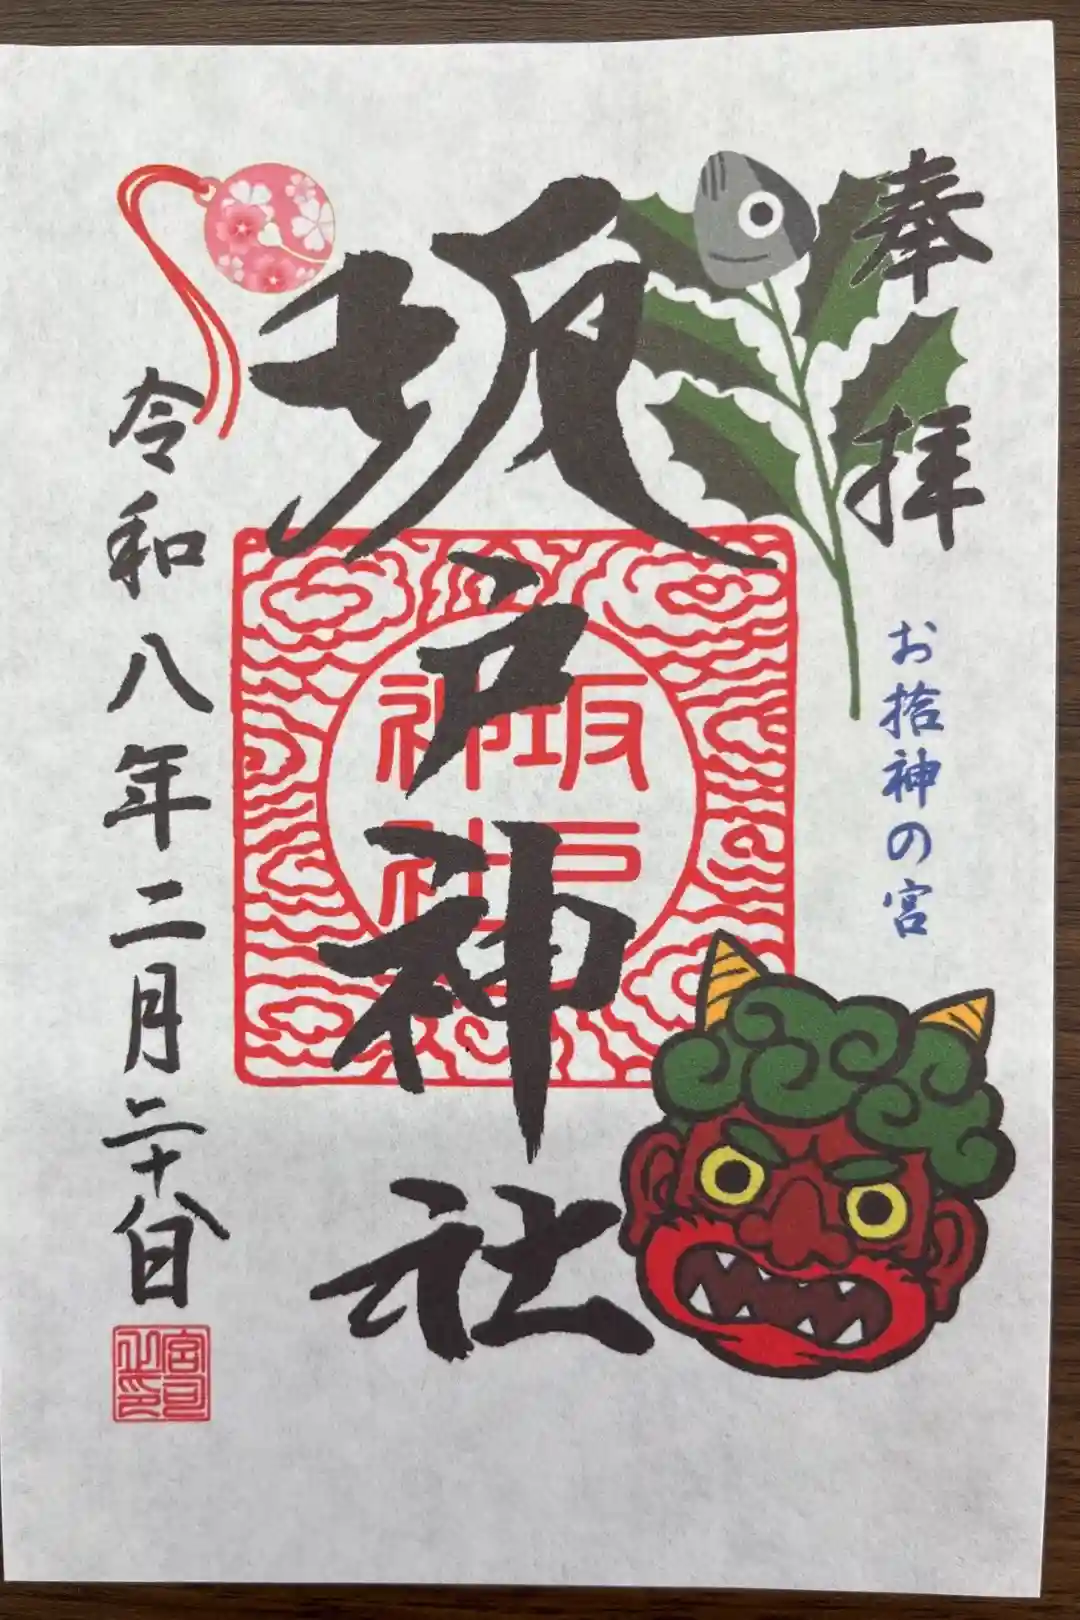 奉拝
お捨神の宮
坂戸神社
坂戸
神社
令和八年二月二十八日
宮司
之印